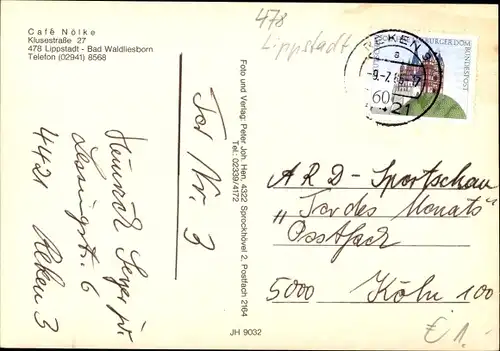 Café Nölke
Klusestraße 27
478 Lippstadt - Bad Waldliesborn
Telefon (02941) 8568
478
Lippstadt
BURGER DOM
BUNDESPOST
60
REKEN 3
a
-9.-7.85-17
4421
Tor Nr. 3
Heinrich
Lessingstr. 6
4421 Reken 3
Foto und Verlag: Peter Joh. Hen, 4322 Sprockhövel 2, Postfach 2104
Tel.: 02339/4172
JH 9032
ARD-Sportschau
„Tor des Monats“
Postfach
5000 Köln 100
€ 1.-